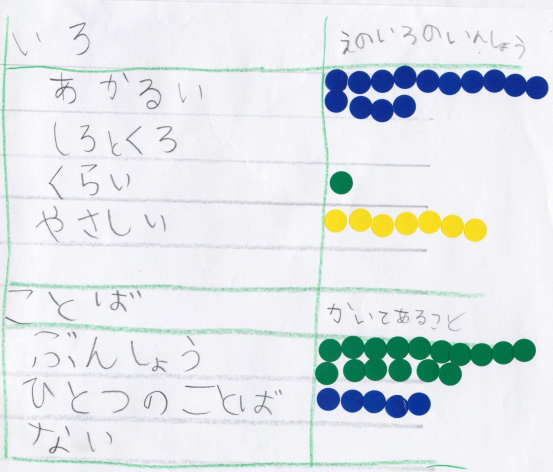 いろ
えのいろのいんしょう
あかるい
しろとくろ
くらい
やさしい
ことば
かいてあること
ぶんしょう
ひとつのことば
ない